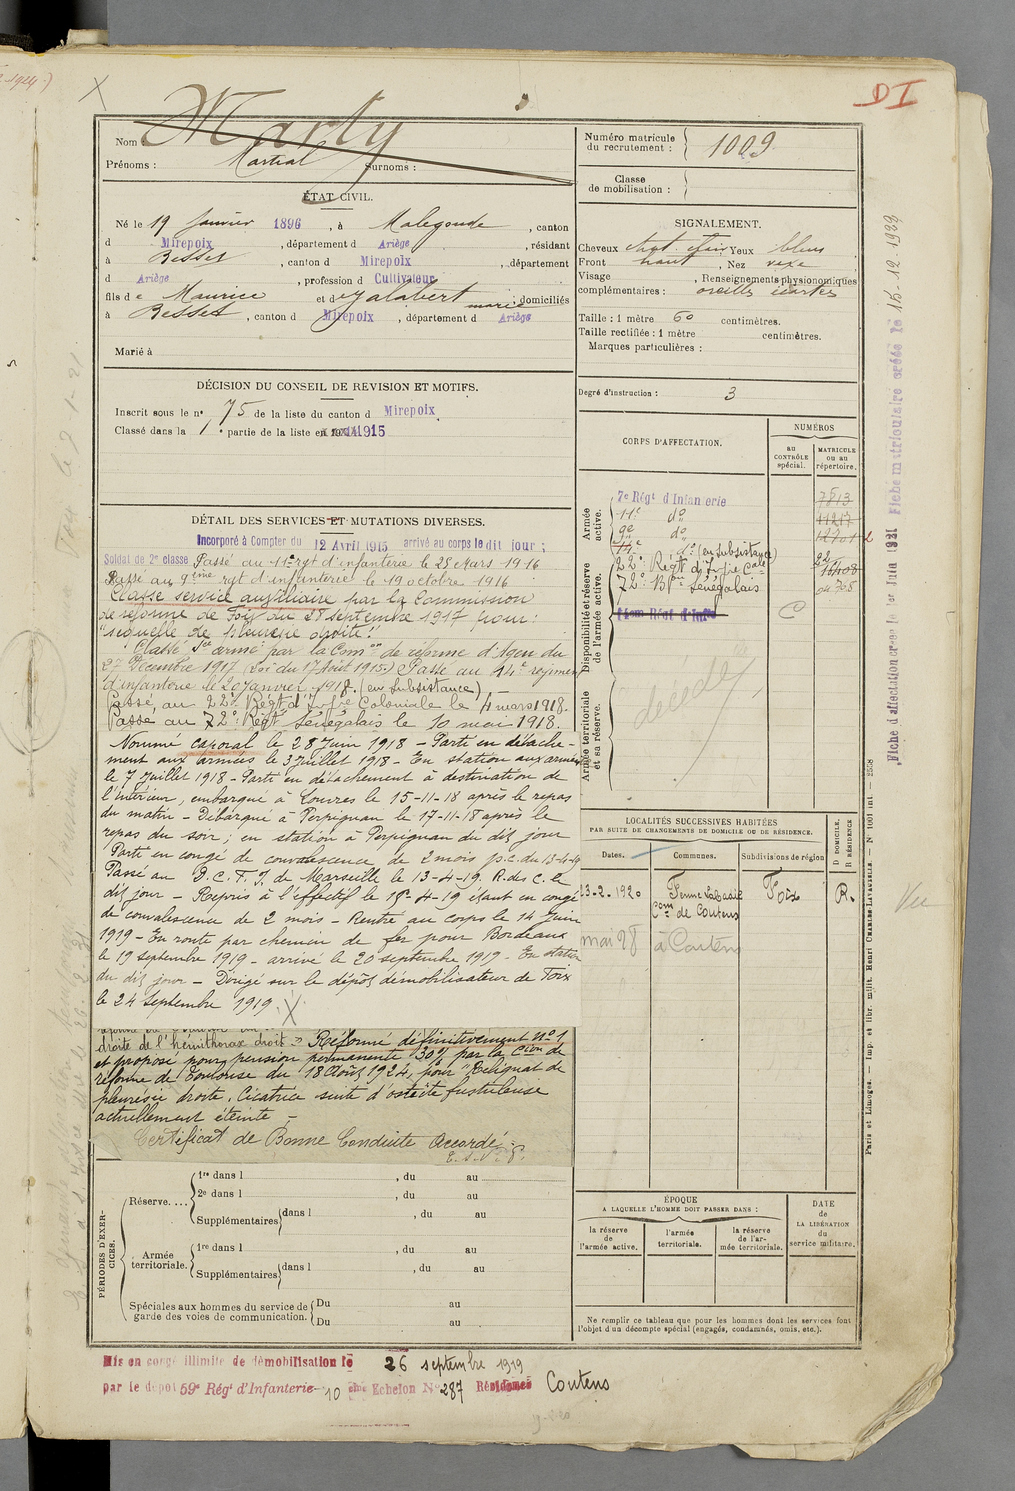 D I
Nom : Marty
Prénoms : Martial Surnoms :
Numéro matricule
du recrutement : 1009
Classe
de mobilisation :
ÉTAT CIVIL.
Né le 19 Janvier 1896, à Malegoude, canton
d Mirepoix, département d Ariège, résidant
à Besset, canton d Mirepoix, département
d Ariège, profession d Cultivateur
fils de Maurice et de Jalabert marie, domiciliés
à Besset, canton d Mirepoix, département d Ariège
Marié à
SIGNALEMENT.
Cheveux chat. clair Yeux bleus
Front haut, Nez vexe
Visage , Renseignements physionomiques
complémentaires : oreilles écartées
Taille : 1 mètre 60 centimètres.
Taille rectifiée : 1 mètre centimètres.
Marques particulières :
Degré d'instruction : 3
DÉCISION DU CONSEIL DE REVISION ET MOTIFS.
Inscrit sous le n° 75 de la liste du canton d Mirepoix
Classé dans la 1 e partie de la liste en 1915
CORPS D'AFFECTATION.
NUMÉROS
AU CONTRÔLE spécial.
MATRICULE ou au répertoire.
Armée active.
7e Régt d'Infanterie 7813
11e do 11217
9e do 12701
14e do (en subsistance)
22e Régt d'Infie Cale 16108
72e Bon Sénégalais
Disponibilité et réserve de l'armée active.
14eme Régt d'Infie C
Armée territoriale et sa réserve.
DÉTAIL DES SERVICES ET MUTATIONS DIVERSES.
Incorporé à Compter du 12 Avril 1915 arrivé au corps le dit jour ;
Soldat de 2e classe Passé au 11e rgt d'infanterie le 25 Mars 1916
Passé au 9ème rgt d'infanterie le 19 octobre 1916
Classé service auxiliaire par la Commission
de réforme de Foix du 28 septembre 1917 pour :
"séquelle de pleurésie droite."
Classé Sce armé par la Comon de réforme d'Agen du
27 Décembre 1917 (Loi du 17 Août 1915.) Passé au 14e régiment
d'infanterie le 20 janvier 1918. (en subsistance) —
Passé au 22e Régt d'Infie Coloniale le 4 mars 1918.
Passé au 72e Régt Sénégalais le 10 mai 1918.
Nommé caporal le 28 Juin 1918 - Parti en détache-
ment aux armées le 3 Juillet 1918 - En station aux armées
le 7 Juillet 1918 - Parti en détachement à destination de
l'intérieur, embarqué à Louvres le 15-11-18 après le repas
du matin - Débarqué à Perpignan le 17-11-18 après le
repas du soir ; en station à Perpignan du dit jour
Parti en congé de convalescence de 2 mois p.c. du 13-4-19
Passé au D.C.T.I. de Marseille le 13-4-19. R. des C. le
dit jour - Repris à l'effectif le 18-4-19 étant en congé
de convalescence de 2 mois - Rentré au corps le 14 Juin
1919 - En route par chemin de fer pour Bordeaux
le 19 septembre 1919 - arrivé le 20 septembre 1919 - En station
du dit jour - Dirigé sur le dépôt démobilisateur de Foix
le 24 Septembre 1919.
droite de l'hémithorax droit - Réformé définitivement N° 1
et proposé pour pension permanente 30% par la Cion de
réforme de Toulouse du 18 Août 1924, pour "Reliquat de
pleurésie droite. Cicatrice suite d'ostéite fistuleuse
actuellement éteinte -
Certificat de Bonne Conduite Accordé.
LOCALITÉS SUCCESSIVES HABITÉES
PAR SUITE DE CHANGEMENTS DE DOMICILE OU DE RÉSIDENCE.
Dates. Communes. Subdivisions de région D DOMICILE, R RÉSIDENCE
13-2-1920 Ferme Labadie Foix R.
Com de Coutens
mai 28 à Coutens
Vu
PÉRIODES D'EXERCICES.
Réserve....
1re dans l , du au
2e dans l , du au
Supplémentaires dans l , du au
Armée territoriale.
1re dans l , du au
Supplémentaires dans l , du au
Spéciales aux hommes du service de
garde des voies de communication.
Du au
Du au
ÉPOQUE
A LAQUELLE L'HOMME DOIT PASSER DANS :
la réserve de l'armée active.
l'armée territoriale.
la réserve de l'armée territoriale.
DATE de LA LIBÉRATION du service militaire.
Ne remplir ce tableau que pour les hommes dont les services font
l'objet d'un décompte spécial (engagés, condamnés, omis, etc.).
Mis en congé illimité de démobilisation le 26 septembre 1919
par le dépôt 59e Régt d'Infanterie 10 ème Echelon N° 287 Résidence Coutens
Fiche d'affectation créée le 1er Juin 1931 Fiche matriculaire créée le 15-12-1933
Paris et Limoges. — Imp. et libr. milit. Henri CHARLES-LAVAUZELLE. — N° 1001 int. — 2508